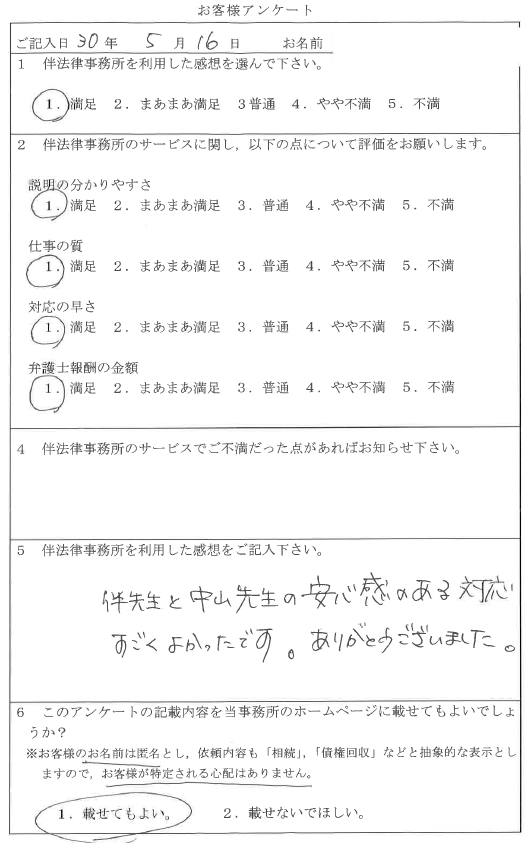 お客様アンケート
ご記入日 30 年 5 月 16 日 お名前
1 伴法律事務所を利用した感想を選んで下さい。
1．満足 2．まあまあ満足 3普通 4．やや不満 5．不満
2 伴法律事務所のサービスに関し，以下の点について評価をお願いします。
説明の分かりやすさ
1．満足 2．まあまあ満足 3．普通 4．やや不満 5．不満
仕事の質
1．満足 2．まあまあ満足 3．普通 4．やや不満 5．不満
対応の早さ
1．満足 2．まあまあ満足 3．普通 4．やや不満 5．不満
弁護士報酬の金額
1．満足 2．まあまあ満足 3．普通 4．やや不満 5．不満
4 伴法律事務所のサービスでご不満だった点があればお知らせ下さい。
5 伴法律事務所を利用した感想をご記入下さい。
伴先生と中山先生の安心感のある対応
すごくよかったです。ありがとうございました。
6 このアンケートの記載内容を当事務所のホームページに載せてもよいでしょ
うか？
※お客様のお名前は匿名とし，依頼内容も「相続」，「債権回収」などと抽象的な表示とし
ますので，お客様が特定される心配はありません。
1．載せてもよい。 2．載せないでほしい。